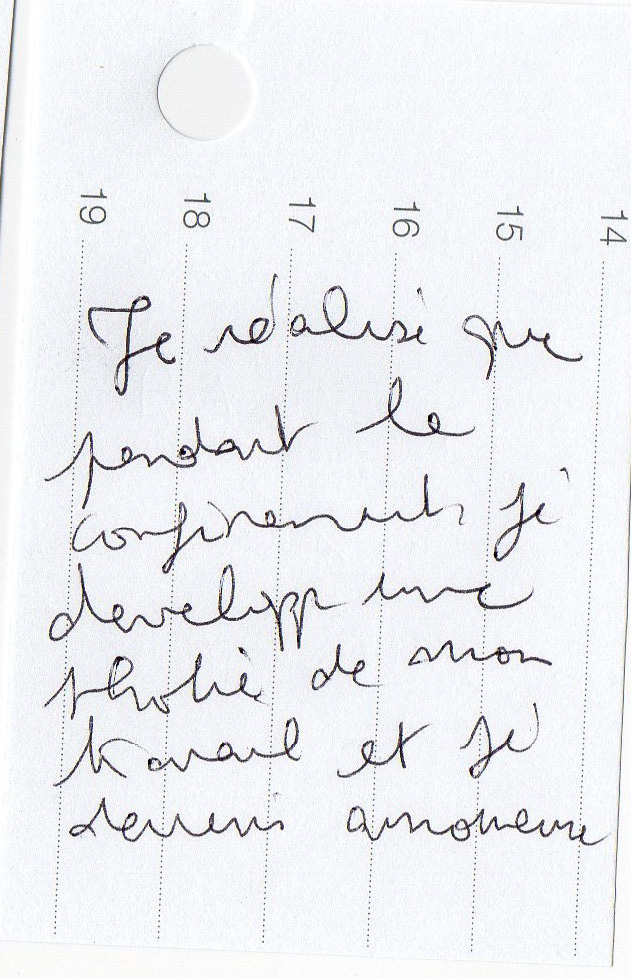 19 18 17 16 15 14
Je réalise que
pendant le
confinement, je
developpe une
phobie de mon
travail et je
deviens amoureuse